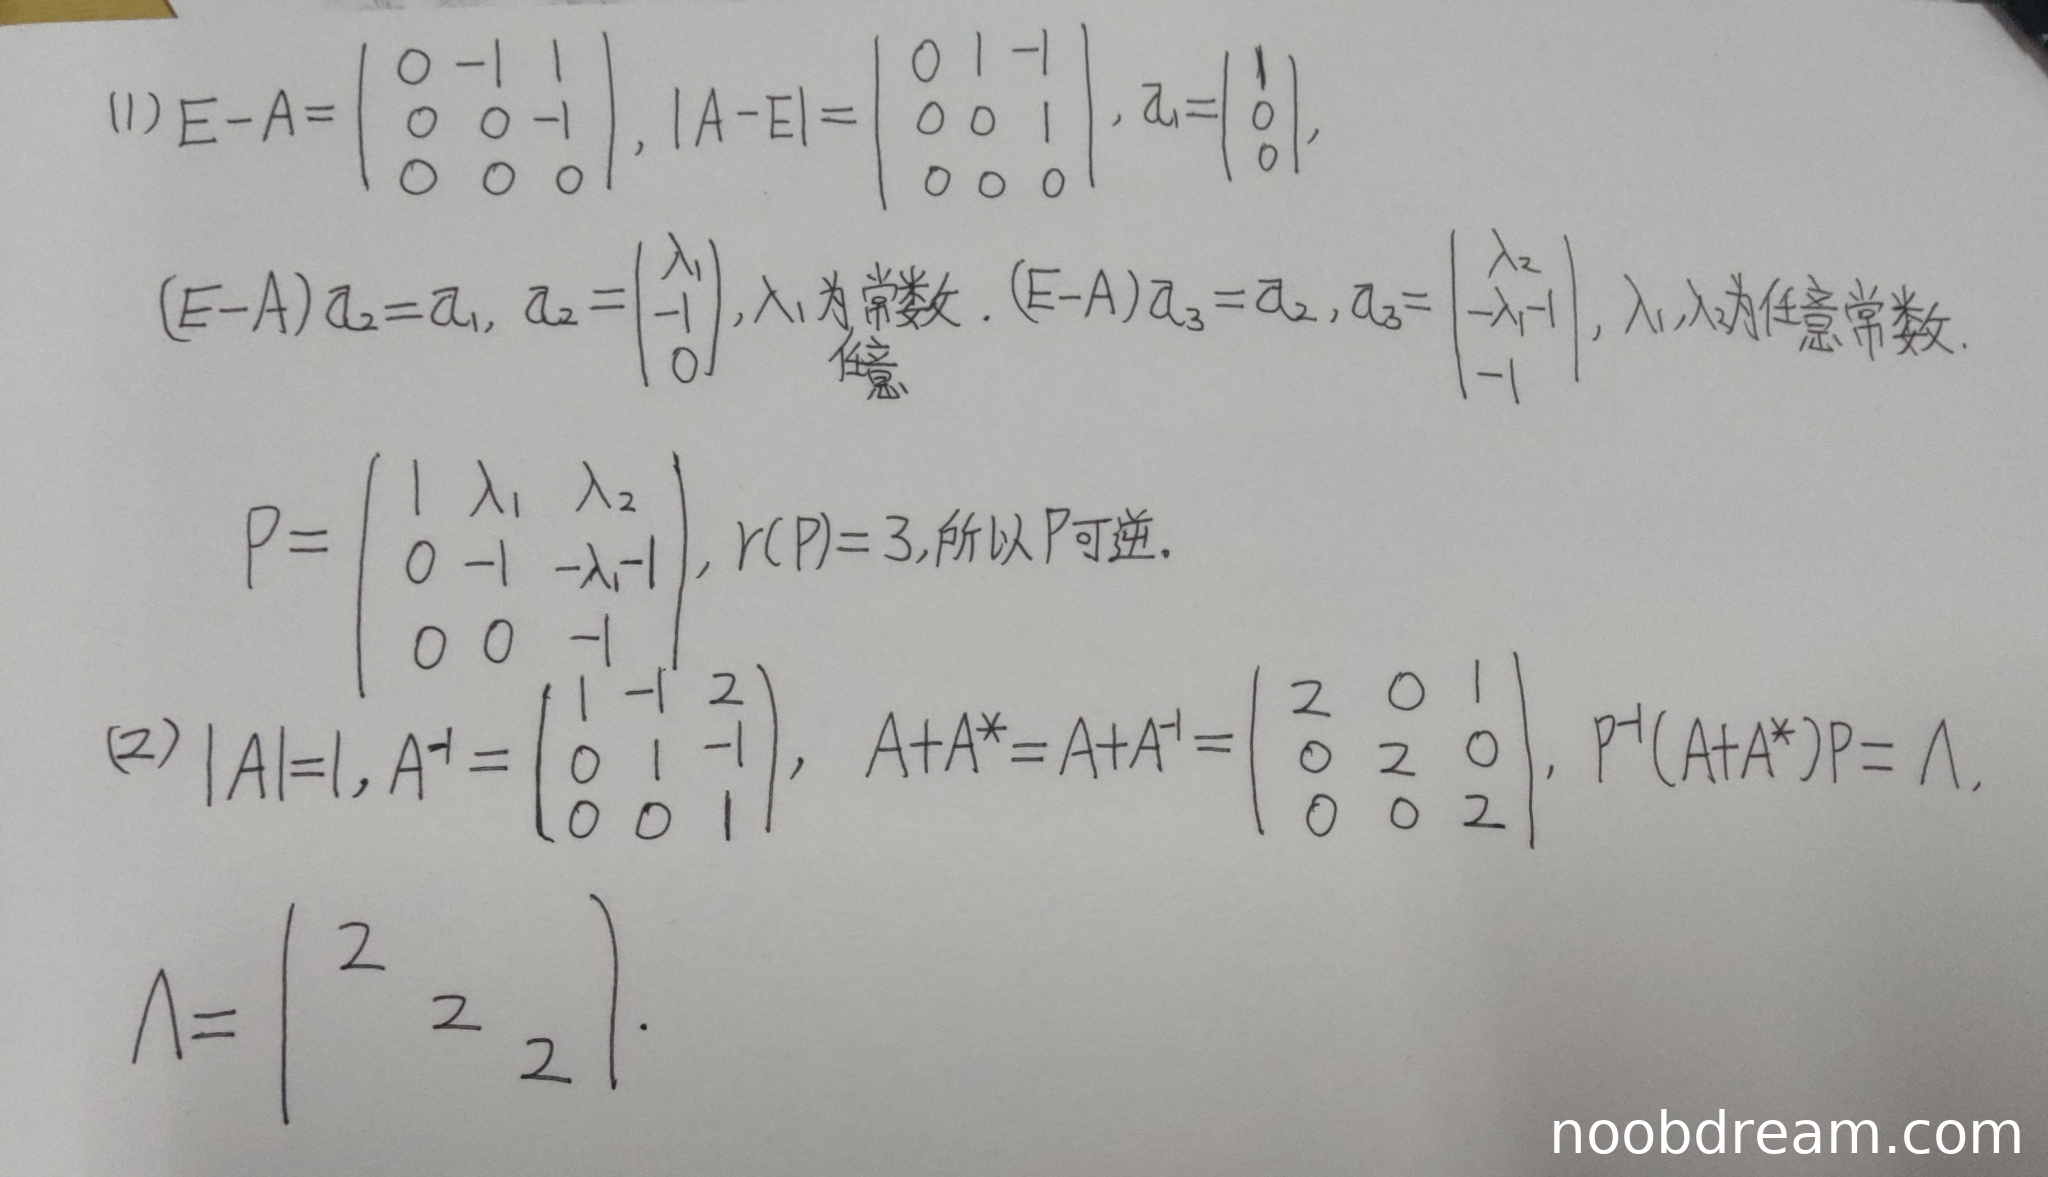 (1) E-A = | 0 -1 1 ; 0 0 -1 ; 0 0 0 |, |A-E| = | 0 1 -1 ; 0 0 1 ; 0 0 0 |, a₁ = | 1 ; 0 ; 0 |,
(E-A)a₂=a₁, a₂ = ( λ₁ ; -1 ; 0 ), λ₁为任意常数. (E-A)a₃=a₂, a₃= | λ₂ ; -λ₁-1 ; -1 |, λ₁,λ₂为任意常数.
P = ( 1 λ₁ λ₂ ; 0 -1 -λ₁-1 ; 0 0 -1 ), r(P)=3,所以P可逆.
(2) |A|=1, A⁻¹ = ( 1 -1 2 ; 0 1 -1 ; 0 0 1 ), A+A*=A+A⁻¹= | 2 0 1 ; 0 2 0 ; 0 0 2 |, P⁻¹(A+A*)P=Λ,
Λ= ( 2 ; 2 ; 2 ).
noobdream.com